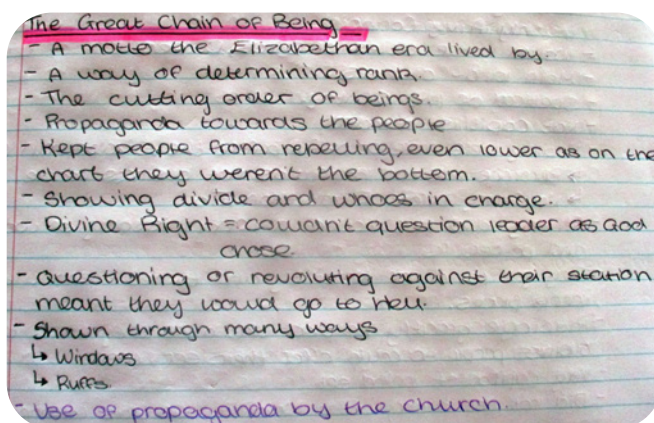 The Great Chain of Being
- A motto the Elizabethan era lived by.
- A way of determining rank.
- The cutting order of beings.
- Propaganda towards the people
- Kept people from repelling, even lower as on the
chart they weren't the bottom.
- Showing divide and whoes in charge.
- Divine Right = couldn't question leader as God
chose
- Questioning or revoluting against their station
meant they would go to Hell.
- Shown through many ways
↳ Windows
↳ Ruffs
- Use of propaganda by the church.